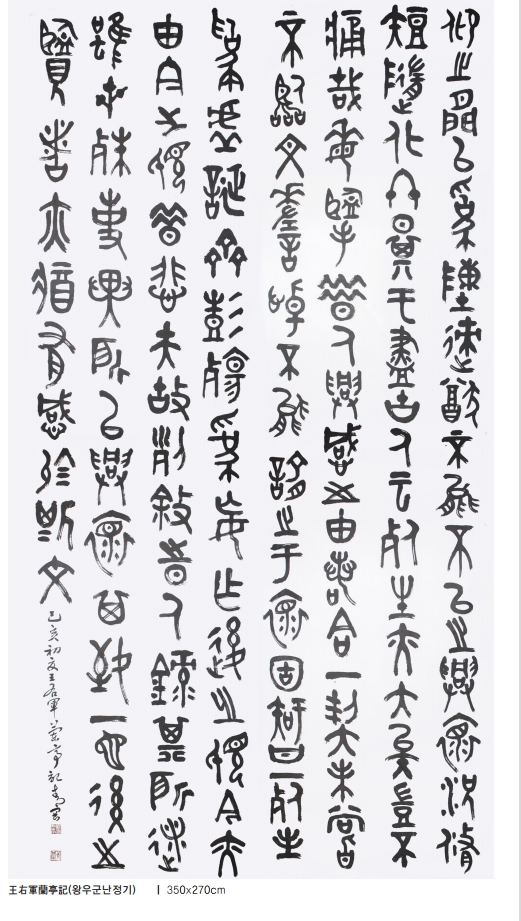 仰之間已爲陳迹猶不能不以之興懷況脩
短隨化終期于盡古人云死生亦大矣豈不
痛哉每攬昔人興感之由若合一契未嘗
不臨文嗟悼不能喻之于懷固知一死生
爲虛誕齊彭殤爲妄作後之視今亦
由今之視昔悲夫故列敘時人錄其所述
雖世殊事異所以興懷其致一也後之
攬者亦將有感於斯文
己亥初夏王右軍蘭亭記
王右軍蘭亭記(왕우군난정기) | 350x270cm